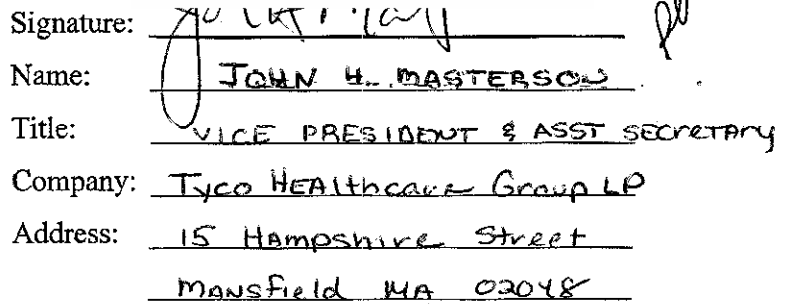 Signature:
Name: JOHN H. MASTERSON
Title: VICE PRESIDENT & ASST SECRETARY
Company: Tyco HEAlthcare Group LP
Address: 15 HAMPSHIRE Street
MANSField MA 02048